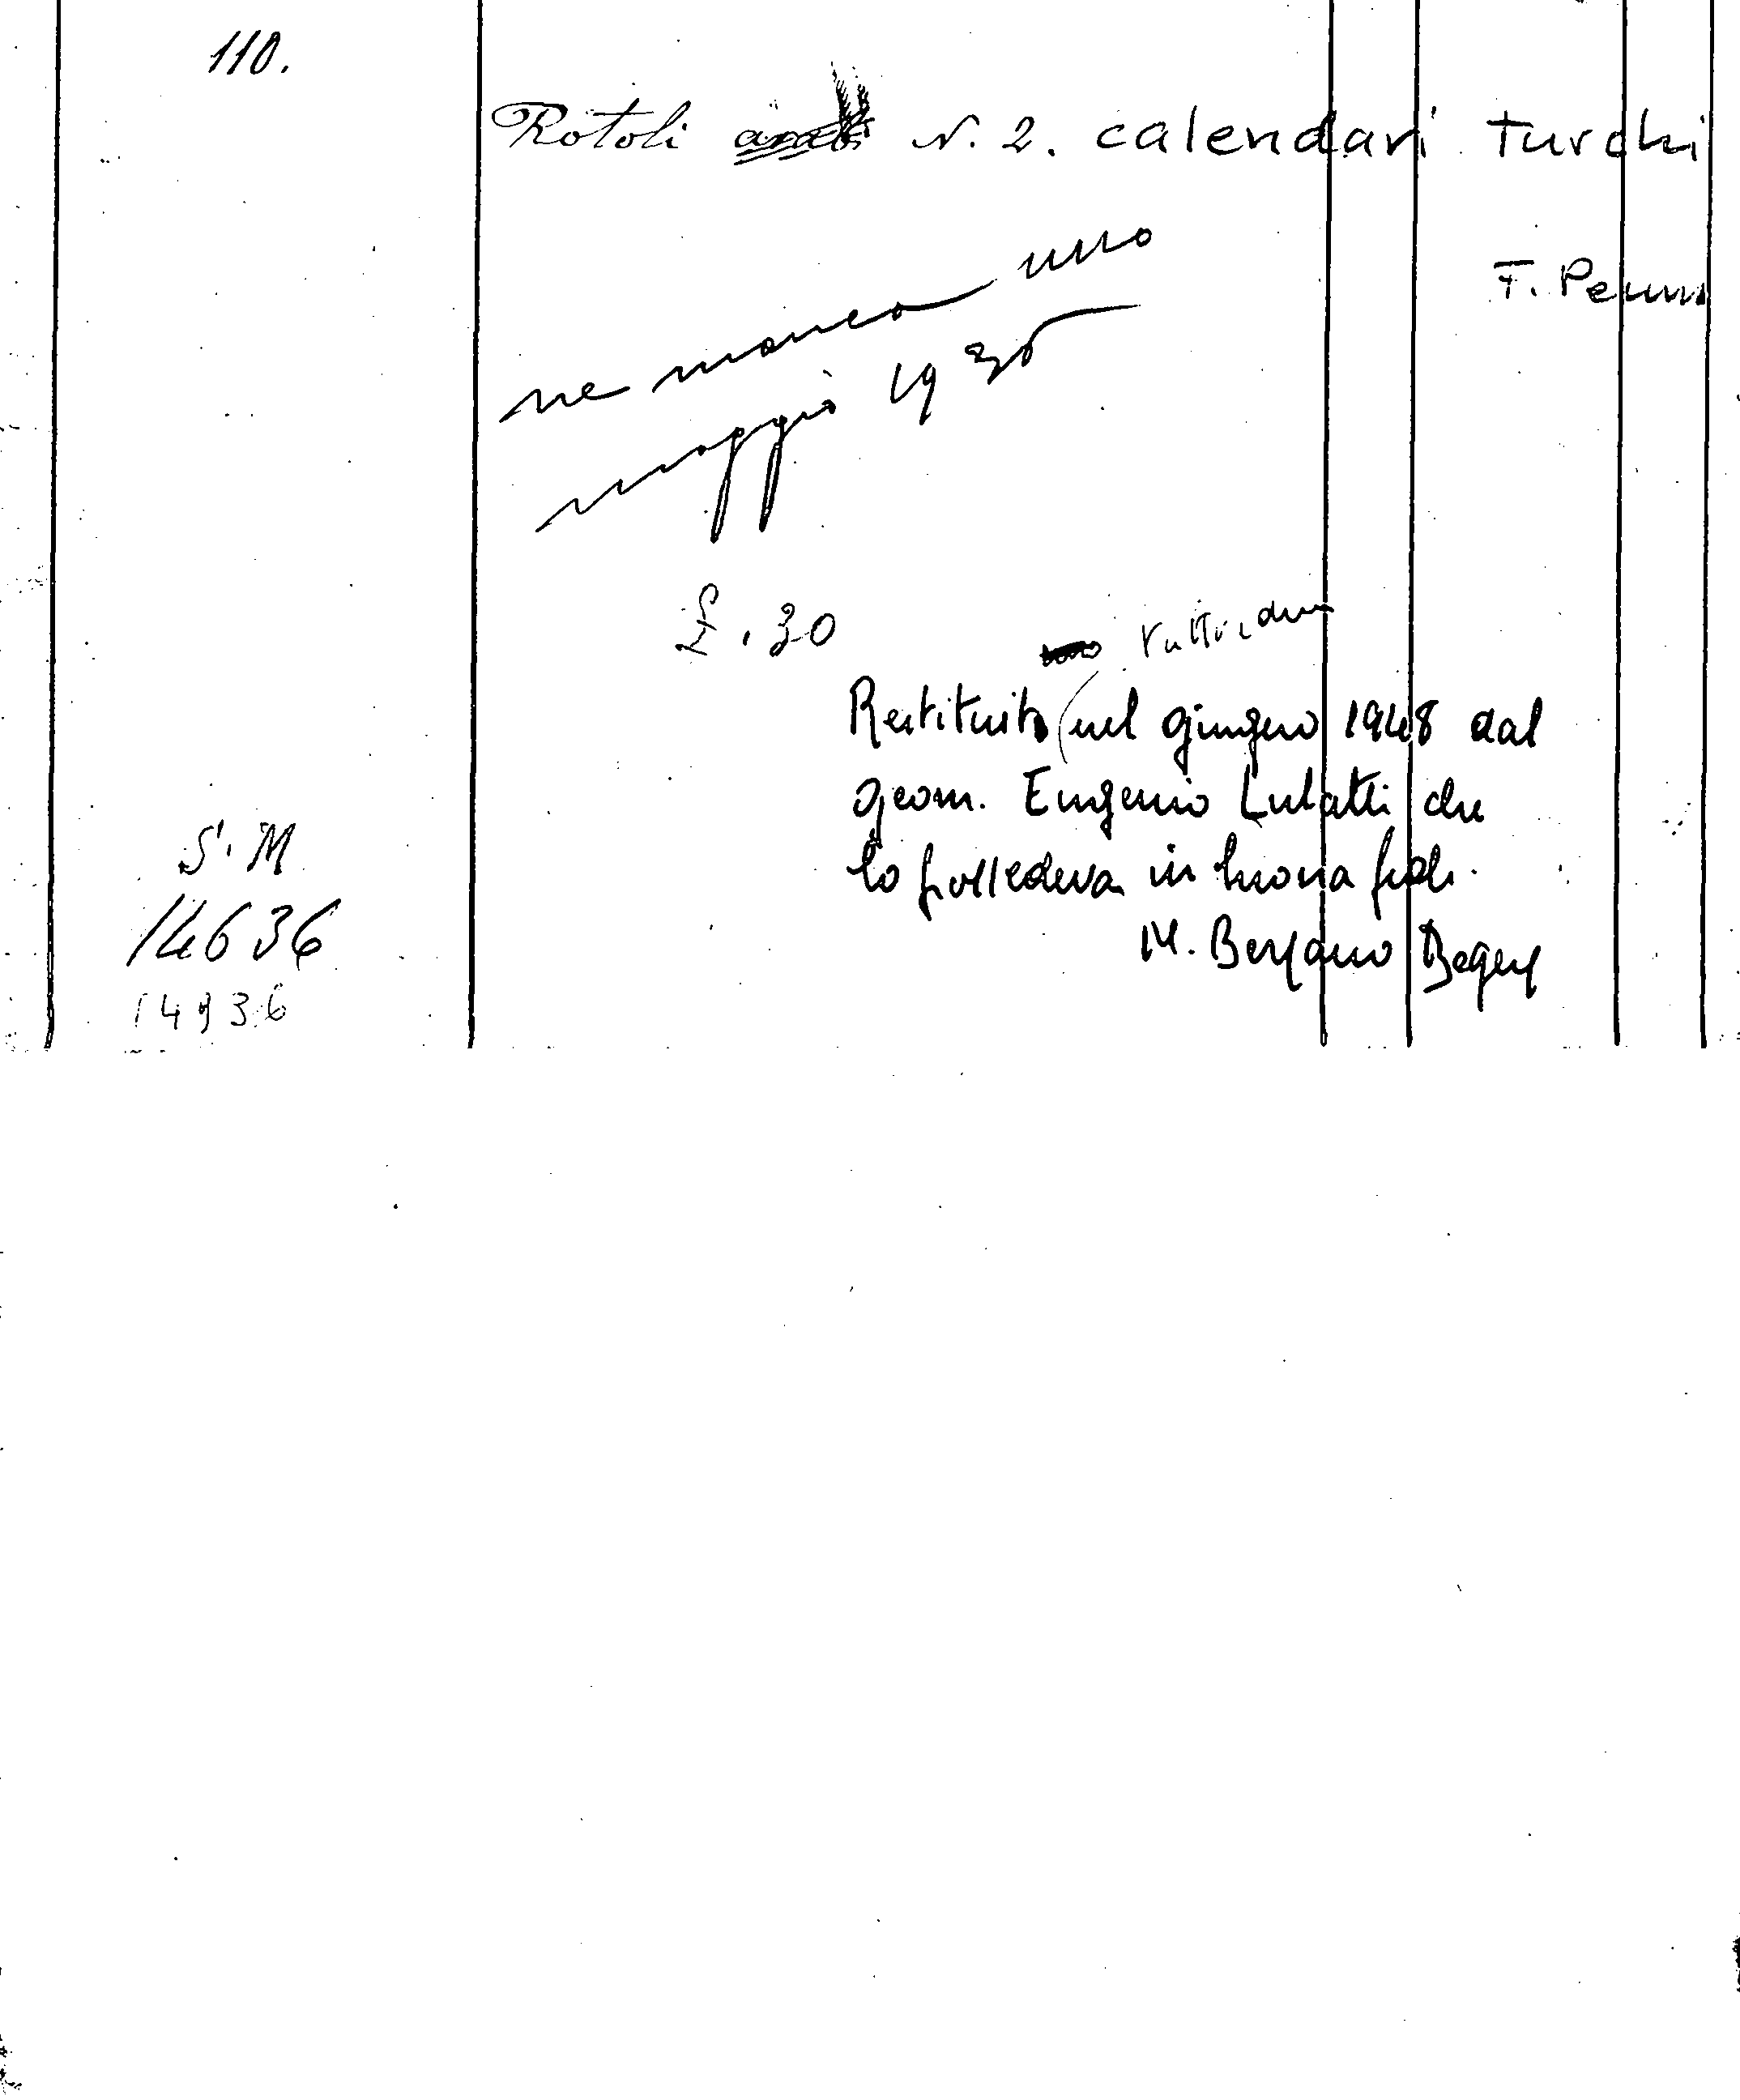 110.
Rotoli arabi N. 2. calendari turchi
F. Penna
ne manca uno
maggio 1936
£. 30
tutti e due
Restituito nel giugno 1948 dal
geom. Eugenio Lubatti che
lo possedeva in buona fede.
M. Bersano Begey
S. M
14636
14936